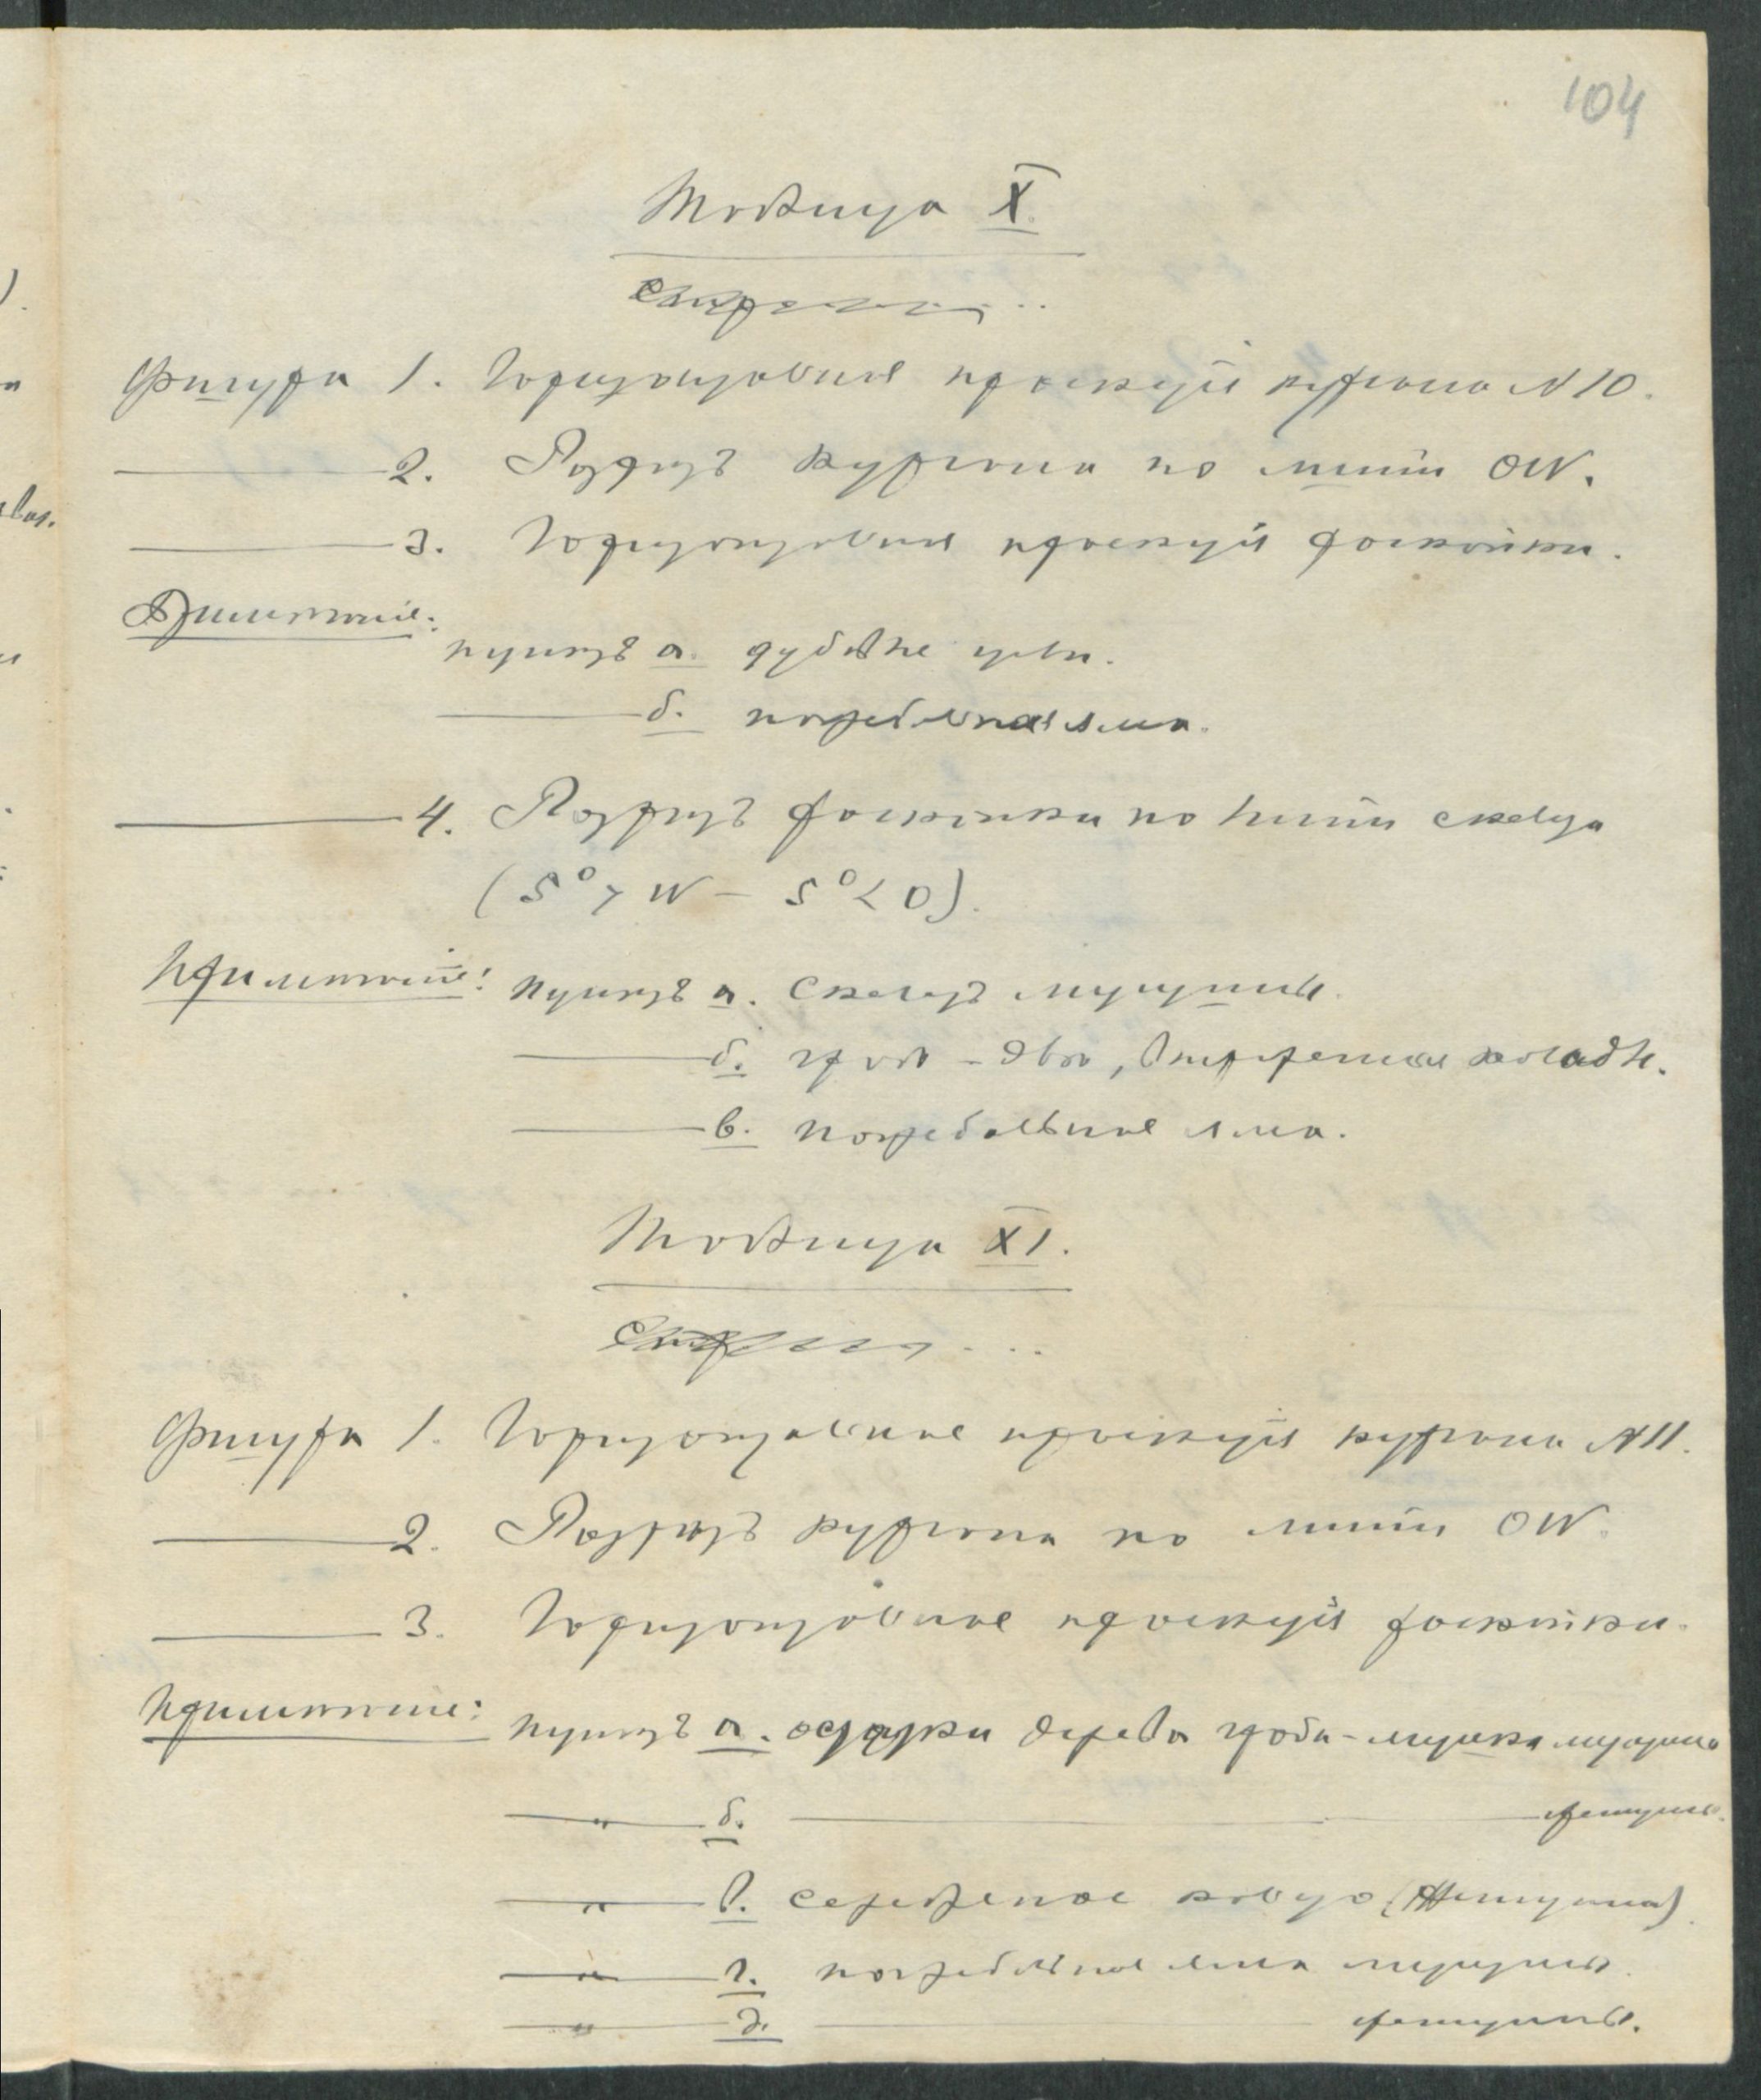 104
Таблица X.
Фигура 1. Горизонтальная проекція кургана N 10.
2. Разрезъ кургана по линіи OW.
3. Горизонтальная проекція раскопки.
Примѣчаніе:
пунктъ а. дубовые
б. погребальная яма.
4. Разрезъ раскопки по линіи скелета
(S°>W – S°<O).
Примѣчаніе: пунктъ а. Скелетъ мужчины.
б. гробъ - колода.
в. погребальная яма.
Таблица XI.
Фигура 1. Горизонтальная проекція кургана N 11.
2. Разрезъ кургана по линіи OW.
3. Горизонтальная проекція раскопки.
Примѣчаніе: пунктъ а. остатки дерева гроба - мужчина
„ б. женщины.
„ в. серебряное кольцо (Женщина)
„ г. погребальная яма мужчины.
„ д. женщины.